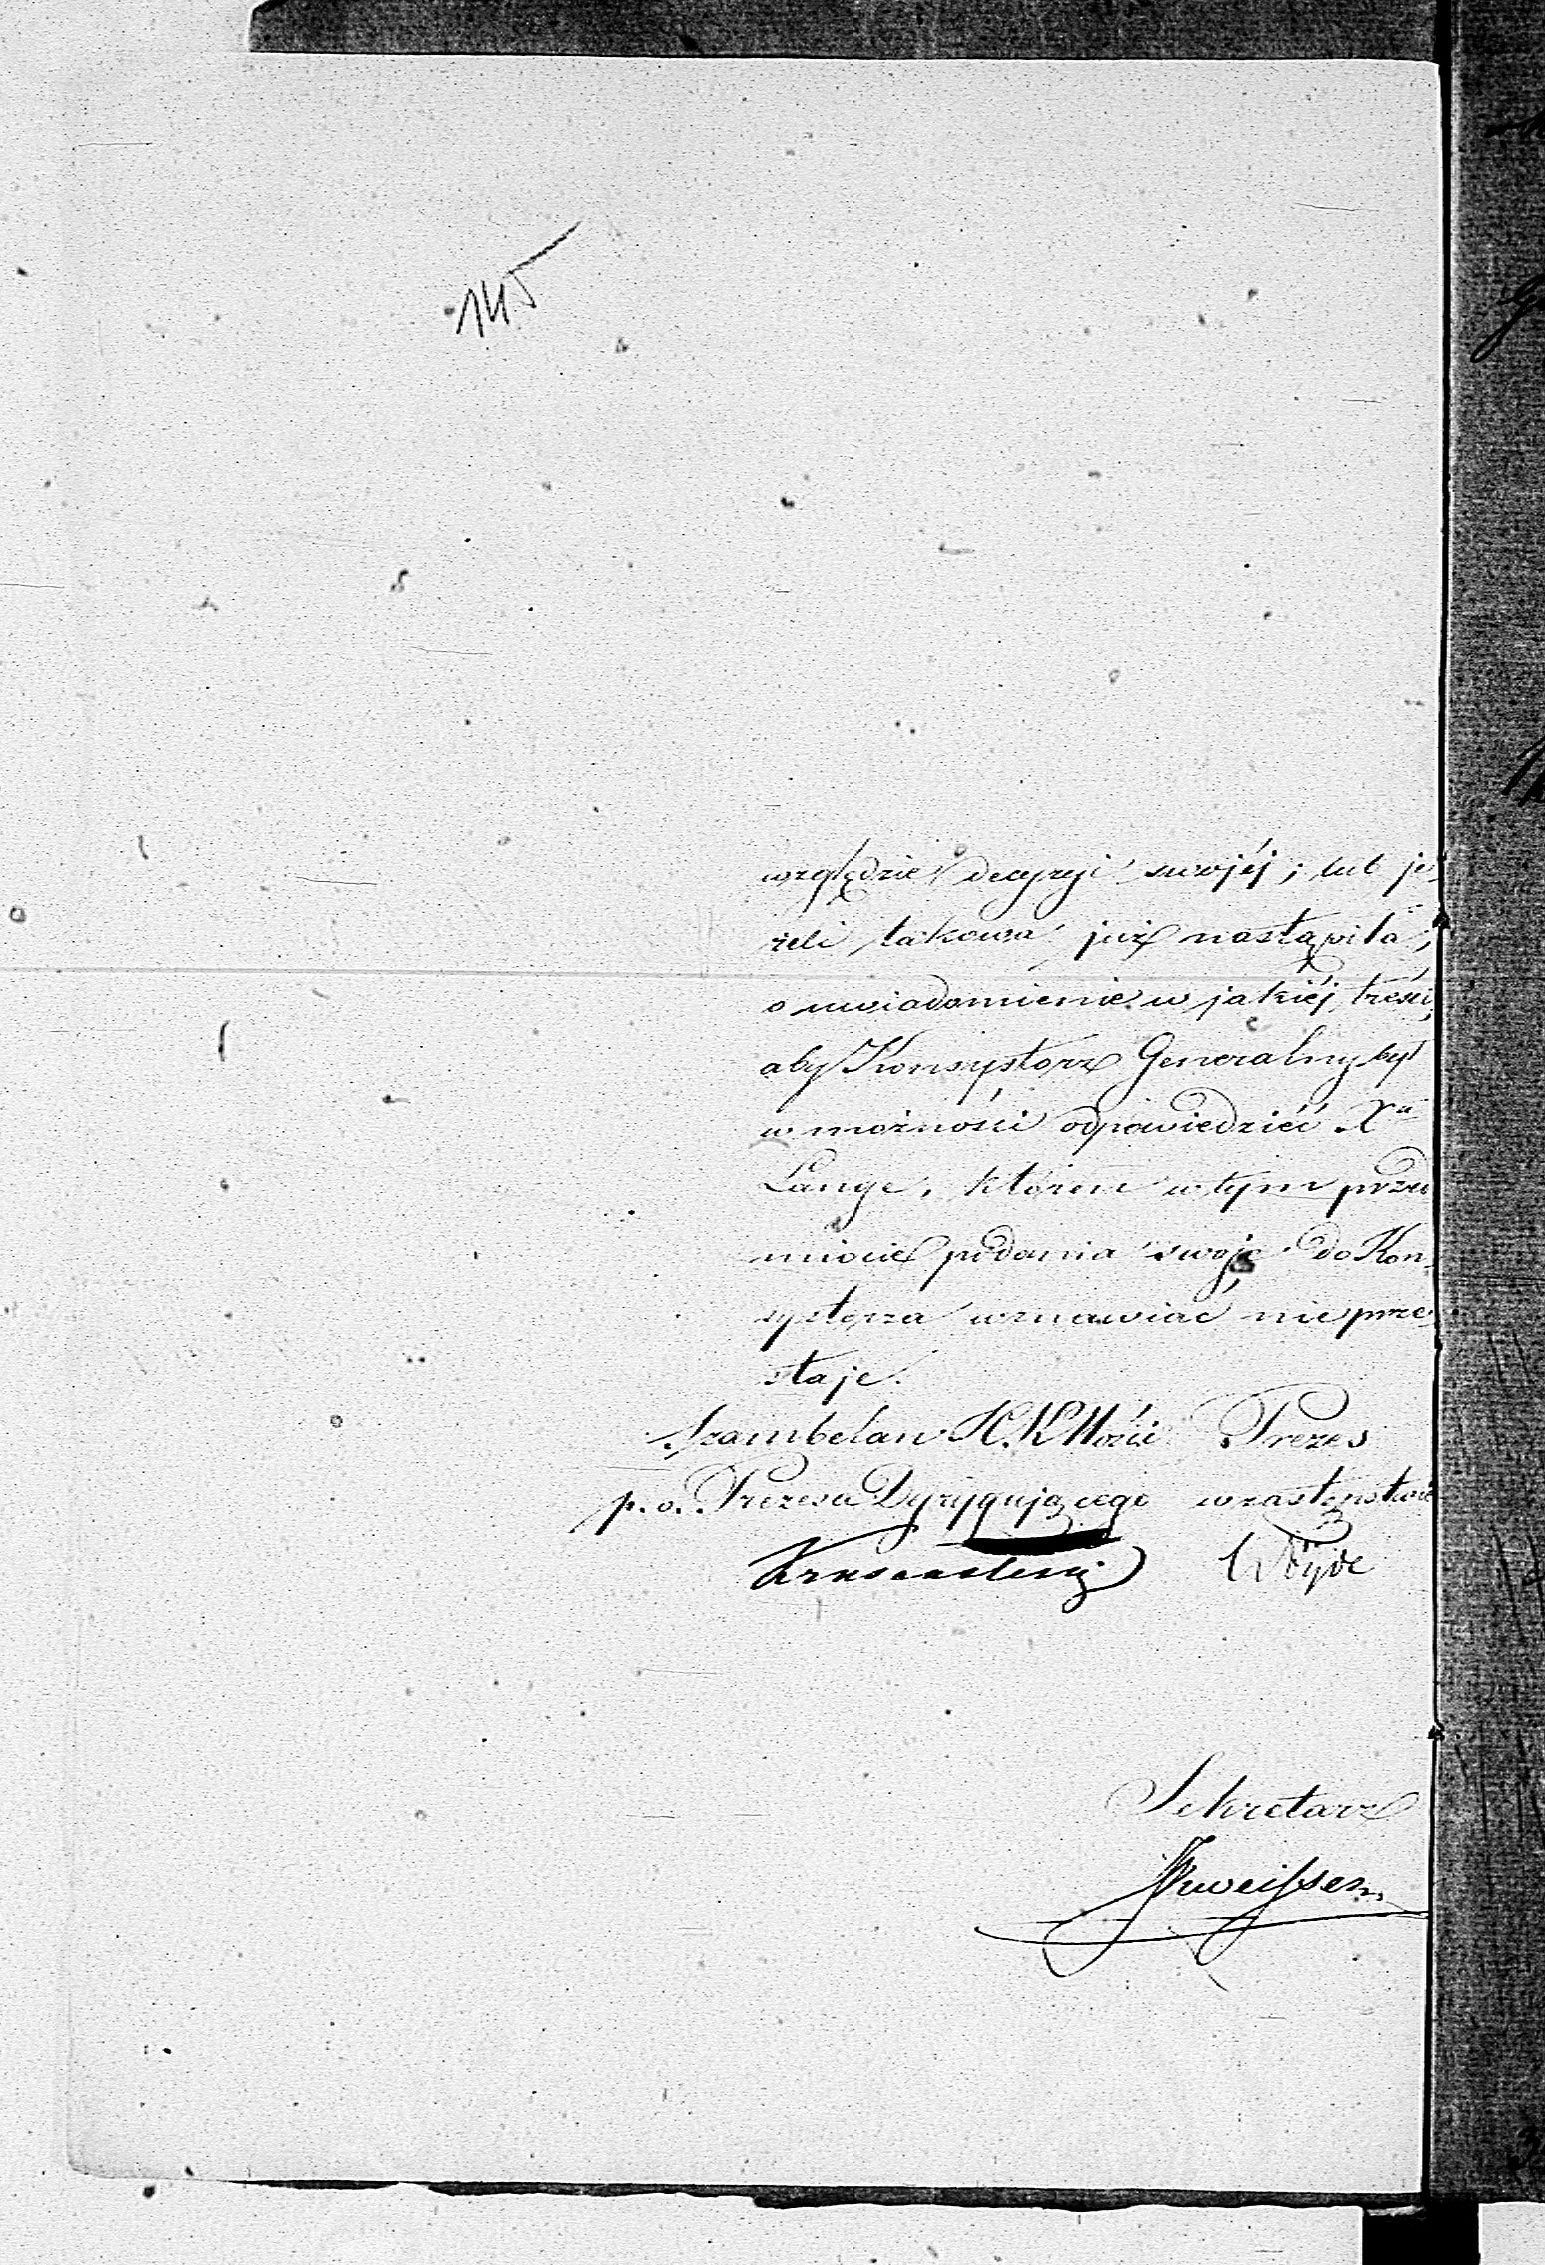 145
względzie decyzyi swojéj; lub je-
żeli takowa już nastąpiła;
o uwiadomienie w jakiéj treści,
aby Konsystorz Generalny był
w możności odpowiedzieć Xu
Lange, któren w tym przed
miocie podania swoje do Kon-
systorza wznawiać nie prze-
staje.
Szambelan Prezes
p. o. Prezesa Dyrygującego w zastępstwie
Krusenstern
Sekretarz